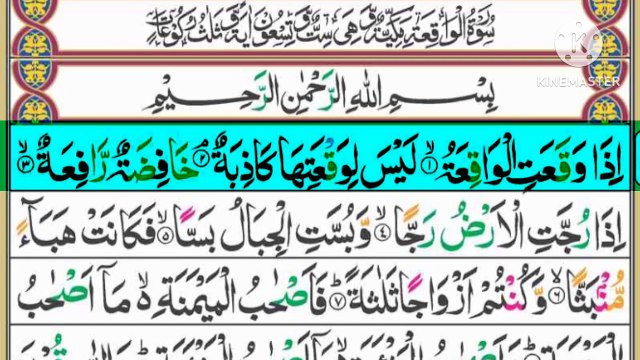 سُوْرَةُ الْوَاقِعَةِ مَكِّيَّةٌ وَّهِىَ سِتٌّ وَّتِسْعُوْنَ اٰيَةً وَّثَلٰثُ رُكُوْعَاتٍ
KINEMASTER
بِسْمِ اللّٰهِ الرَّحْمٰنِ الرَّحِيْمِ
اِذَا وَقَعَتِ الْوَاقِعَةُ ۙ﴿۱﴾ لَيْسَ لِوَقْعَتِهَا كَاذِبَةٌ ۘ﴿۲﴾ خَافِضَةٌ رَّافِعَةٌ ۙ﴿۳﴾
اِذَا رُجَّتِ الْاَرْضُ رَجًّا ۙ﴿۴﴾ وَّبُسَّتِ الْجِبَالُ بَسًّا ۙ﴿۵﴾ فَكَانَتْ هَبَآءً
مُّنْۢبَثًّا ۙ﴿۶﴾ وَّكُنْتُمْ اَزْوَاجًا ثَلٰثَةً ؕ﴿۷﴾ فَاَصْحٰبُ الْمَيْمَنَةِ ۙ۬ مَاۤ اَصْحٰبُ